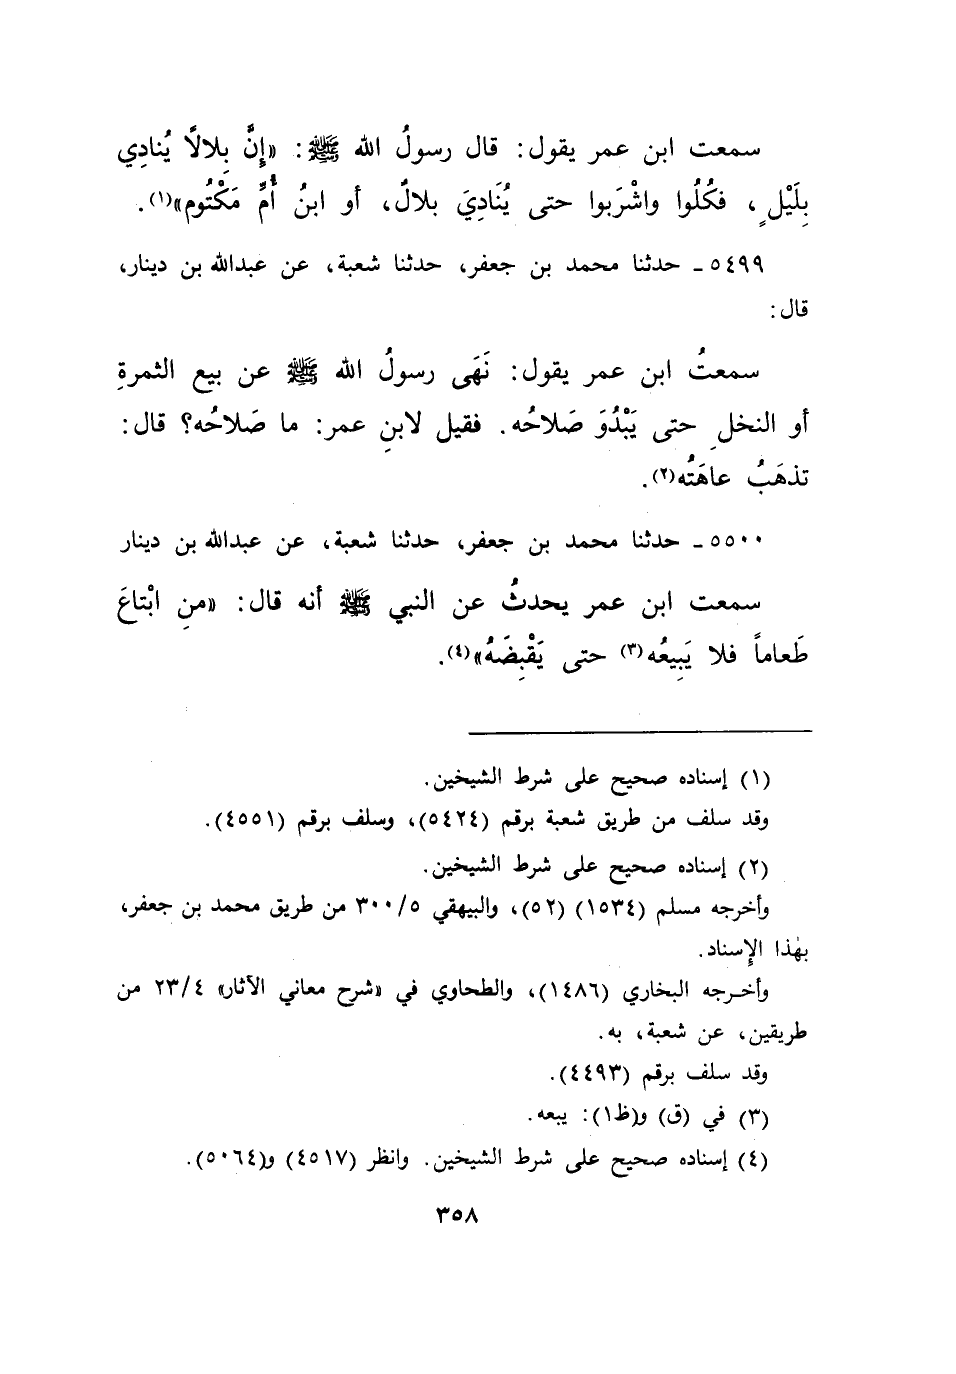 سمعت ابن عمر يقول: قال رسولُ الله ﷺ: «إِنَّ بِلالًا يُنادِي
بِلَيْلٍ، فكُلُوا واشْرَبوا حتى يُنَادِيَ بلالٌ، أو ابنُ أُمِّ مَكْتُوم»(١).
٥٤٩٩ ـ حدثنا محمد بن جعفر، حدثنا شعبة، عن عبدالله بن دينار،
قال:
سمعتُ ابن عمر يقول: نَهَى رسولُ الله ﷺ عن بيع الثمرةِ
أو النخلِ حتى يَبْدُوَ صَلاحُه. فقيل لابنِ عمر: ما صَلاحُه؟ قال:
تذهَبُ عاهَتُه(٢).
٥٥٠٠ ـ حدثنا محمد بن جعفر، حدثنا شعبة، عن عبدالله بن دينار
سمعت ابن عمر يحدثُ عن النبي ﷺ أنه قال: «منِ ابْتاعَ
طَعاماً فلا يَبِيعُه(٣) حتى يَقْبِضَهُ»(٤).
(١) إسناده صحيح على شرط الشيخين.
وقد سلف من طريق شعبة برقم (٥٤٢٤)، وسلف برقم (٤٥٥١).
(٢) إسناده صحيح على شرط الشيخين.
وأخرجه مسلم (١٥٣٤) (٥٢)، والبيهقي ٣٠٠/٥ من طريق محمد بن جعفر،
بهٰذا الإسناد.
وأخرجه البخاري (١٤٨٦)، والطحاوي في «شرح معاني الآثار» ٢٣/٤ من
طريقين، عن شعبة، به.
وقد سلف برقم (٤٤٩٣).
(٣) في (ق) و(ظ١): يبعه.
(٤) إسناده صحيح على شرط الشيخين. وانظر (٤٥١٧) و(٥٠٦٤).
٣٥٨